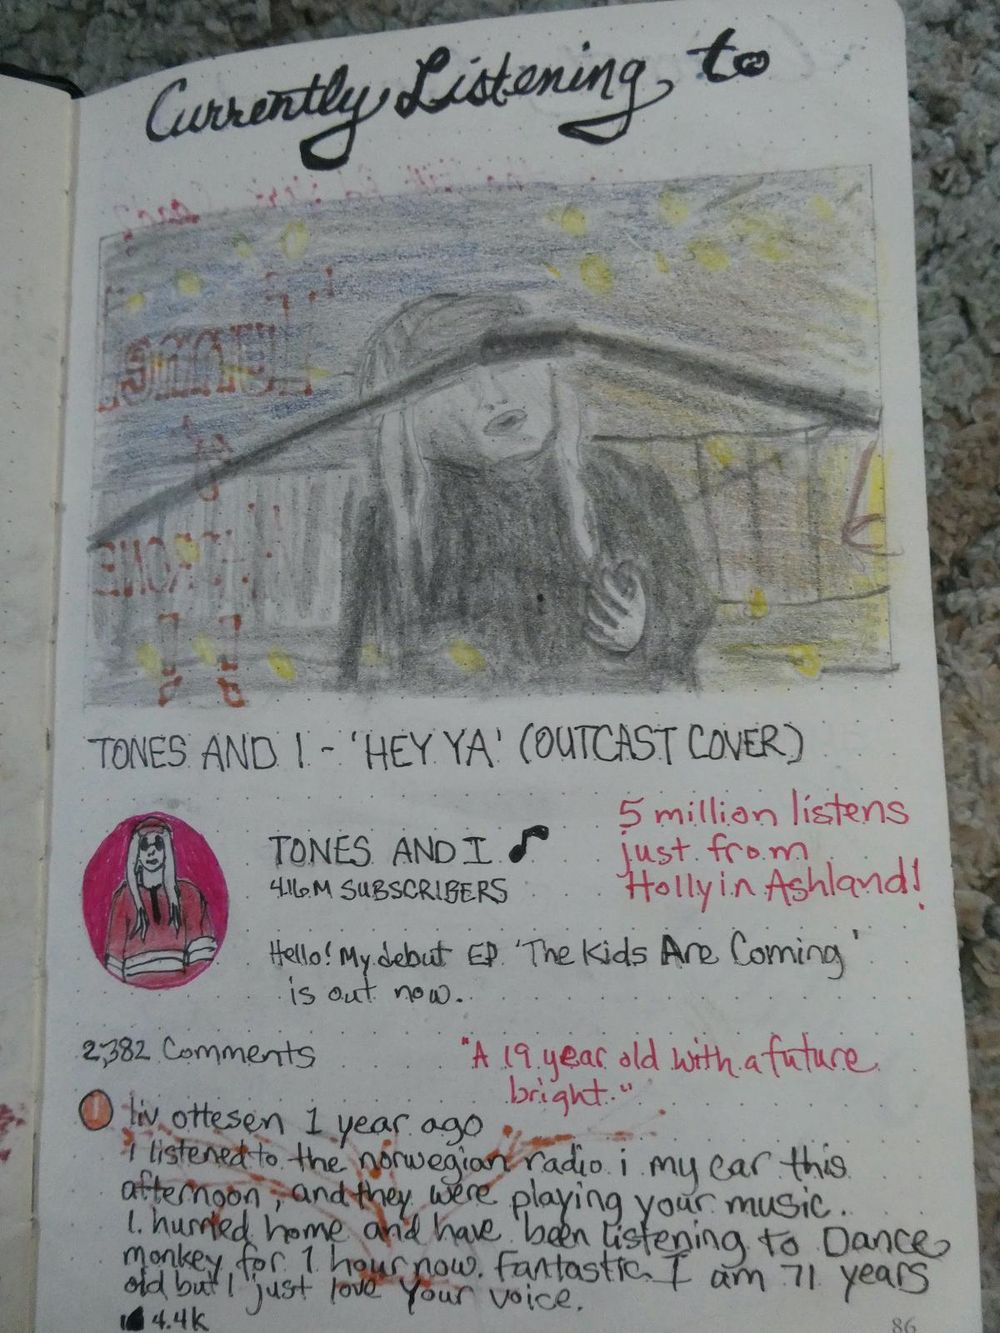 Currently Listening to
TONES AND I - 'HEY YA' (OUTCAST COVER)
TONES AND I
4.16M SUBSCRIBERS
5 million listens
just from
Holly in Ashland!
Hello! My debut EP 'The Kids Are Coming'
is out now.
2,382 Comments
"A 19 year old with a future
bright."
liv ottesen 1 year ago
I listened to the norwegian radio i my car this
afternoon, and they were playing your music.
I hurried home and have been listening to Dance
monkey for 1 hour now. Fantastic I am 71 years
old but I just love your voice.
4.4K
86